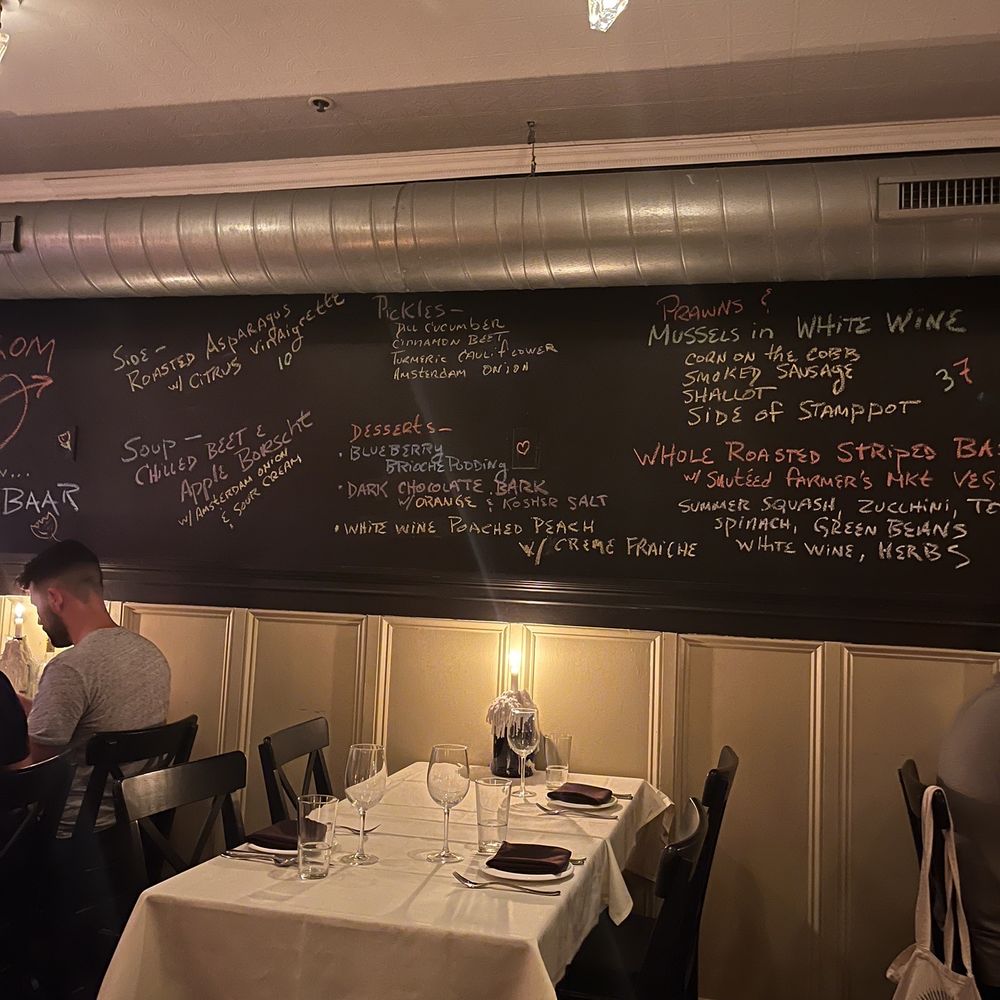 OM
BAAR
SIDE -
ROASTED ASPARAGUS
W/ CITRUS VINAIGRETTE
10
SOUP -
CHILLED BEET &
APPLE BORSCHT
W/ AMSTERDAM ONION
& SOUR CREAM
PICKLES -
DILL CUCUMBER
CINNAMON BEET
TURMERIC CAULIFLOWER
AMSTERDAM ONION
DESSERTS -
• BLUEBERRY
BRIOCHE PUDDING
• DARK CHOCOLATE BARK
W/ ORANGE & KOSHER SALT
• WHITE WINE POACHED PEACH
W/ CREME FRAICHE
PRAWNS &
MUSSELS in WHITE WINE
CORN ON THE COBB
SMOKED SAUSAGE
37
SHALLOT
SIDE OF STAMPPOT
WHOLE ROASTED STRIPED BA
W/ SAUTÉED FARMER'S MKT VEG
SUMMER SQUASH, ZUCCHINI, TO
SPINACH, GREEN BEANS
WHITE WINE, HERBS